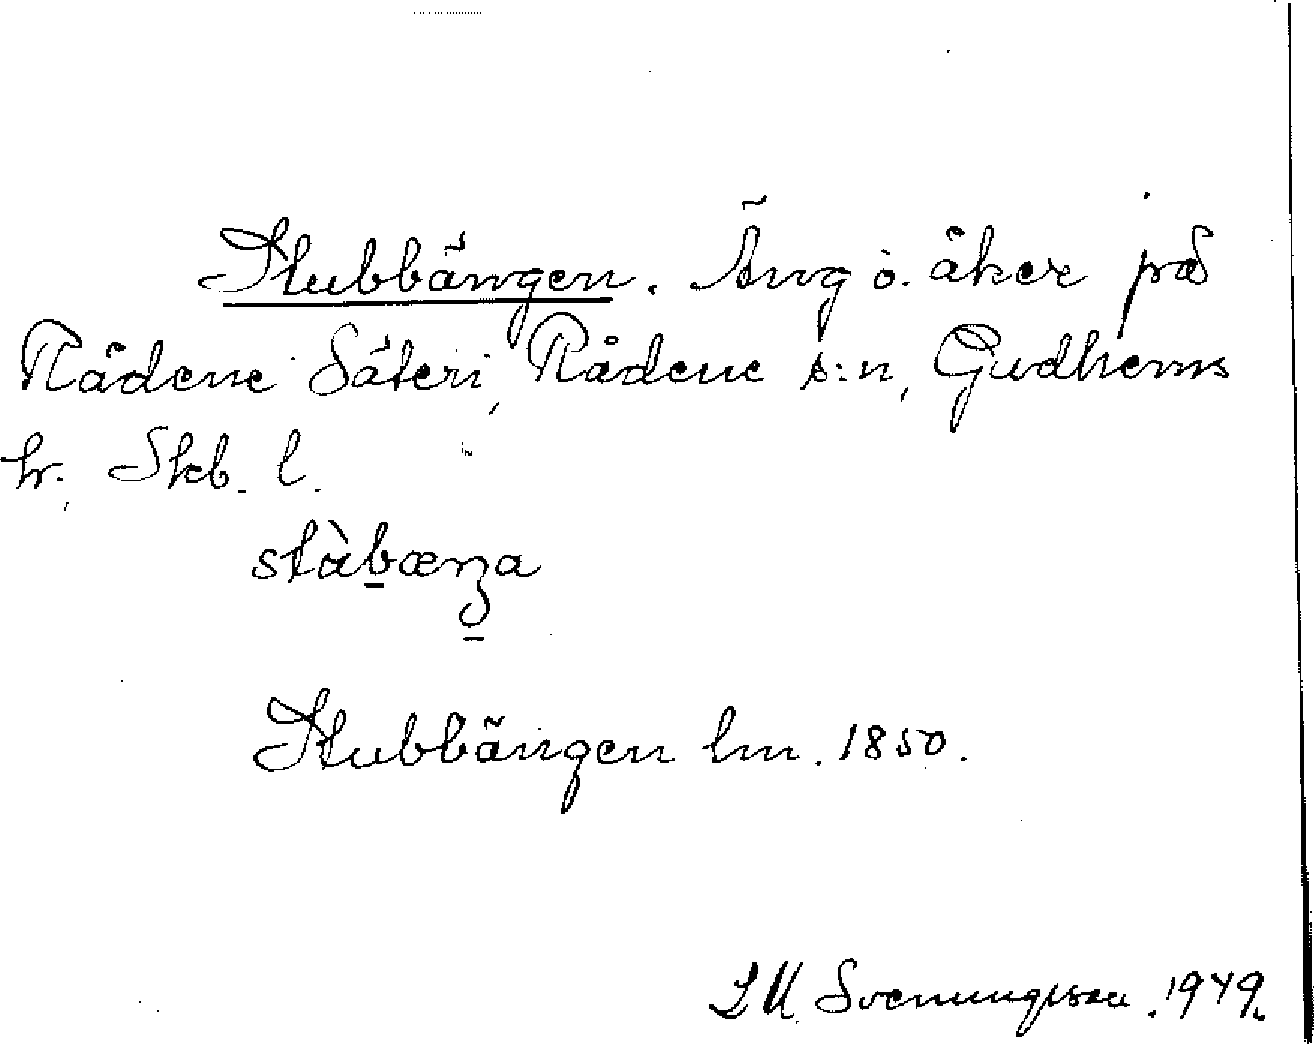 Stubbängen. Äng o. åker på
Rådene Säteri, Rådene s:n, Gudhems
hr. Skb. l.
stàbæŋa
Stubbängen lm. 1850.
LM Svenungsson. 1949.